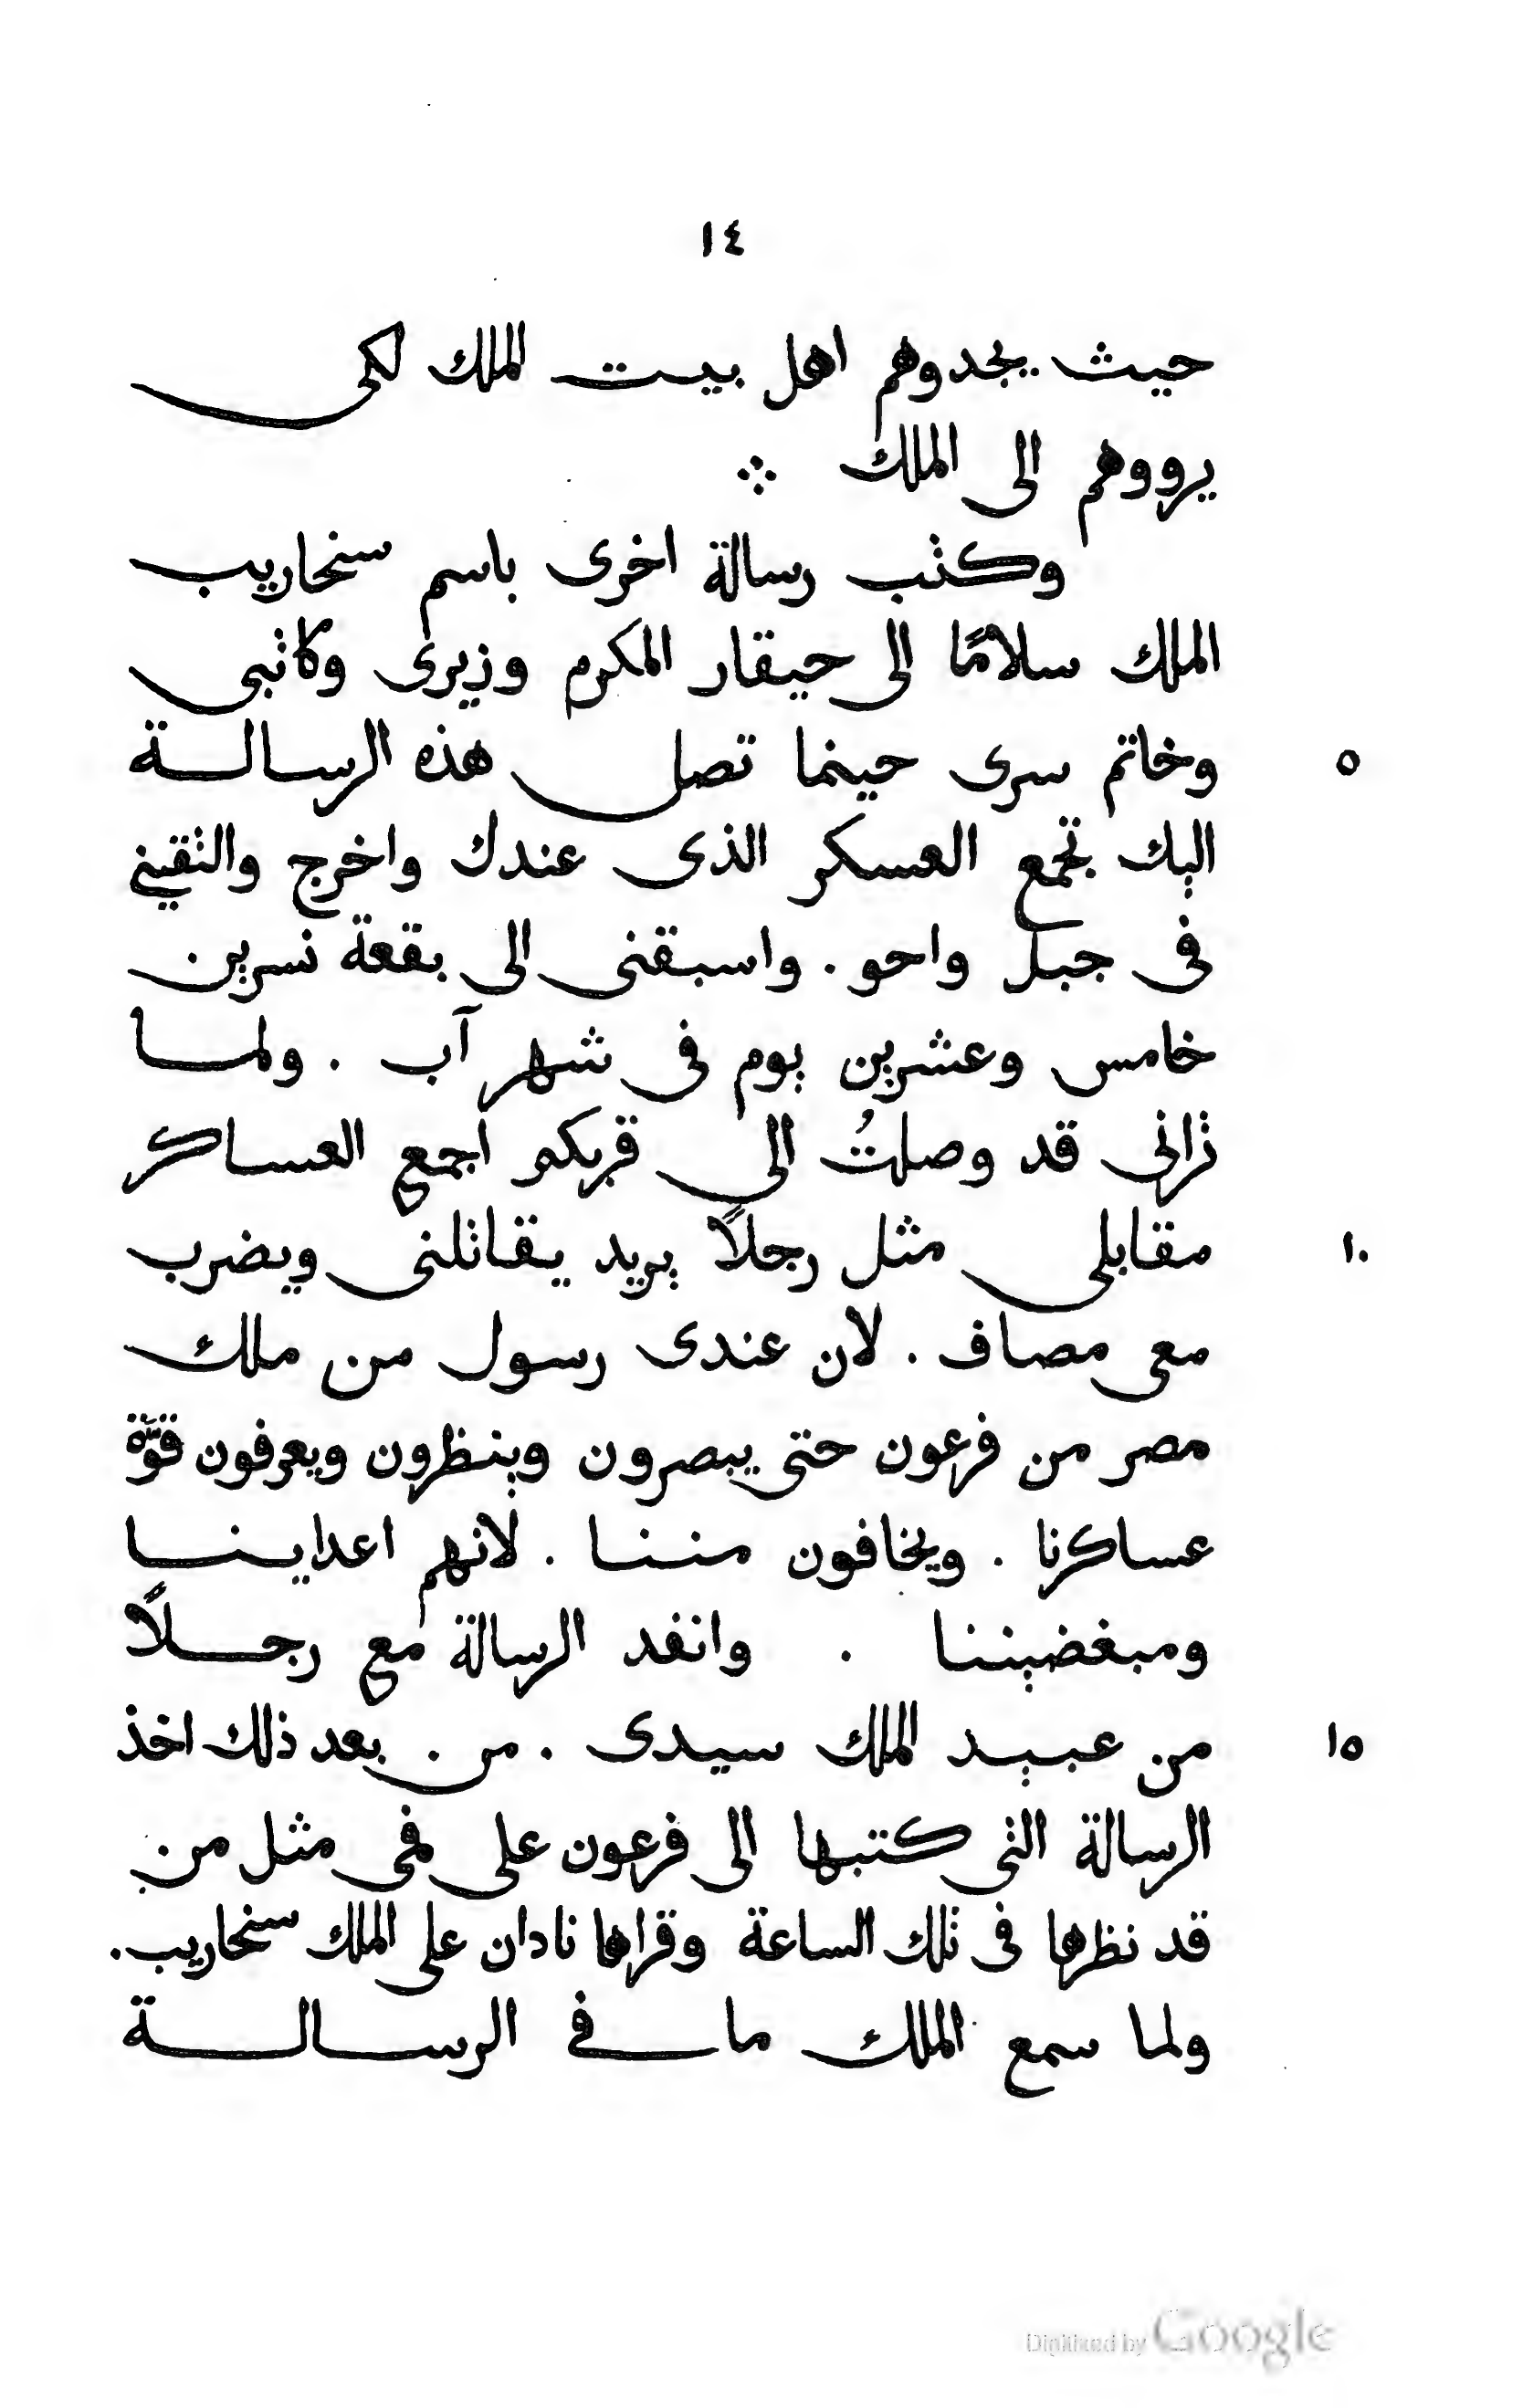 ١٤
حيث يجدوهم اهل بيت الملك لكى
يرووهم الى الملك ܀
وكتب رسالة اخرى باسم سنحاريب
الملك سلامًا الى حيقار المكرم وزيرى وكاتبى
٥ وخاتم سرى حينما تصل هذه الرسالة
اليك تجمع العسكر الذى عندك واخرج والتقينى
فى جبل واحو . واسبقنى الى بقعة نسرين
خامس وعشرين يوم فى شهر آب . ولما
ترانى قد وصلتُ الى قربكم اجمع العساكر
١٠ مقابلى مثل رجلاً يريد يقاتلنى ويضرب
معى مصاف . لان عندى رسول من ملك
مصر من فرعون حتى يبصرون وينظرون ويعرفون قوّة
عساكرنا . ويخافون مننا . لانهم اعداينا
ومبغضيننا . وانفد الرسالة مع رجلاً
١٥ من عبيد الملك سيدى . من . بعد ذلك اخذ
الرسالة التى كتبها الى فرعون على فمى مثل من
قد نظرها فى تلك الساعة وقراها نادان على الملك سنحاريب .
ولما سمع الملك ما فى الرسالة
Digitized by Google